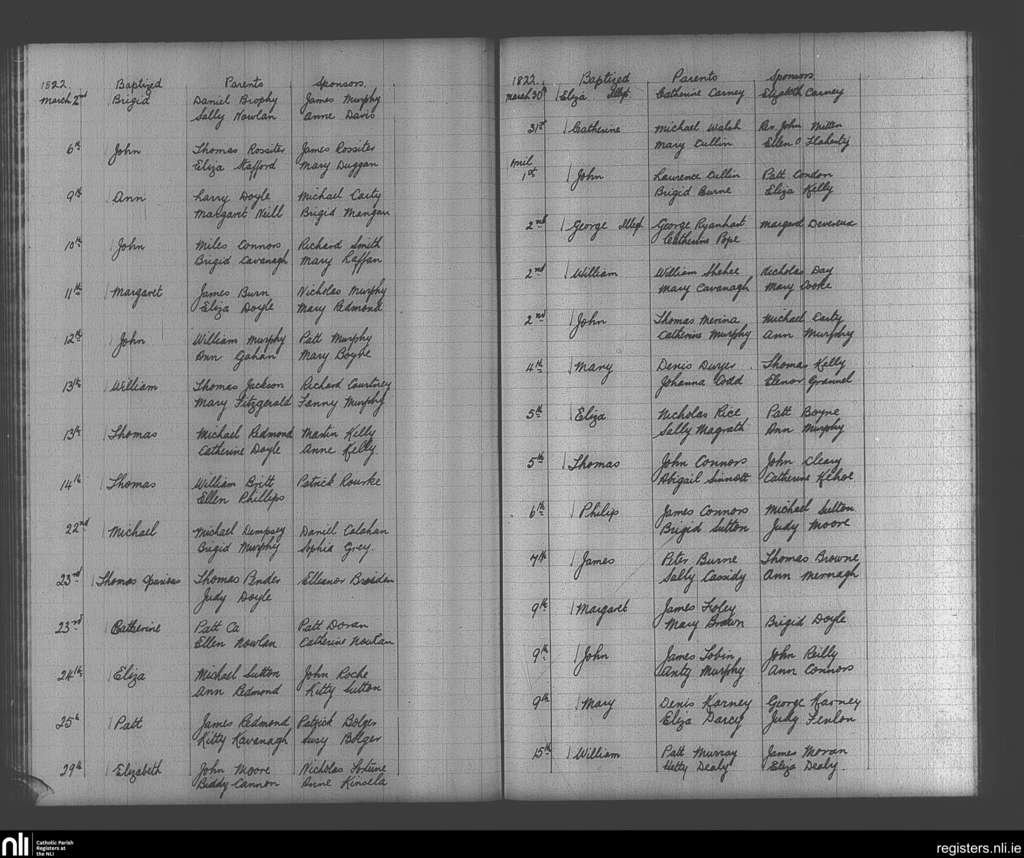 1822. Baptized Parents Sponsors.
March 2nd Brigid Daniel Brophy James Murphy
Sally Nowlan Anne Davis
6th John Thomas Rossiter James Rossiter
Eliza Stafford Mary Duggan
9th Ann Larry Doyle Michael Carty
Margaret Neill Brigid Mangan
10th John Miles Connors Richard Smith
Brigid Cavanagh Mary Kaffan
11th Margaret James Burn Nicholas Murphy
Eliza Doyle Mary Redmond
12th John William Murphy Patt Murphy
Ann Gahan Mary Boyne
13th William Thomas Jackson Richard Courtney
Mary Fitzgerald Fanny Murphy
13th Thomas Michael Redmond Martin Kelly
Catherine Doyle Anne Kelly.
14th Thomas William Britt Patrick Rourke
Ellen Phillips
22nd Michael Michael Dempsey Daniel Calahan
Brigid Murphy Sophia Grey.
23rd Thomas Thomas Pender Elleanor
Judy Doyle
23rd Catherine Patt Ca Patt Doran
Ellen Nowlan Catherine Nowlan
24th Eliza Michael Sutton John Roche
Ann Redmond Kitty Sutton
25th Patt James Redmond Patrick Bolger
Kitty Kavanagh Susy Bolger
29th Elizabeth John Moore Nicholas Fortune
Biddy Cannon Anne Kinsela
1822. Baptized Parents Sponsors.
March 30th Eliza Illeg. Catherine Carney Elizabeth Carney
31st Catherine Michael Walsh Rev. John Mitten
Mary Cullin Ellen O Flaherty
1st John Laurence Cullin Patt Condon
Brigid Burne Eliza Kelly
2nd George Illeg. George Ryanhart Margaret Devereux
Catherine Pope
2nd William William Shehee Nicholas Day
Mary Cavanagh Mary Cooke
2nd John Thomas Merina Michael Carty
Catherine Murphy Ann Murphy
4th Mary Denis Dwyer Thomas Kelly
Johanna Codd Elenor Grannel
5th Eliza Nicholas Rice Patt Boyne
Sally Magrath Ann Murphy
5th Thomas John Connors John Cleary
Abigail Sinnott Catherine Kehoe
6th Philip James Connors Michael Sutton
Brigid Sutton Judy Moore
7th James Peter Burne Thomas Browne
Sally Cassidy Ann Mernagh
9th Margaret James Foley
Mary Brown Brigid Doyle
9th John James Tobin John Reilly
Anty Murphy Ann Connors
9th Mary Denis Karney George Karney
Eliza Darcy Judy Fenlon
15th William Patt Murray James Moran
Hetty Dealy Eliza Dealy.
nli Catholic Parish
Registers at
the NLI
registers.nli.ie